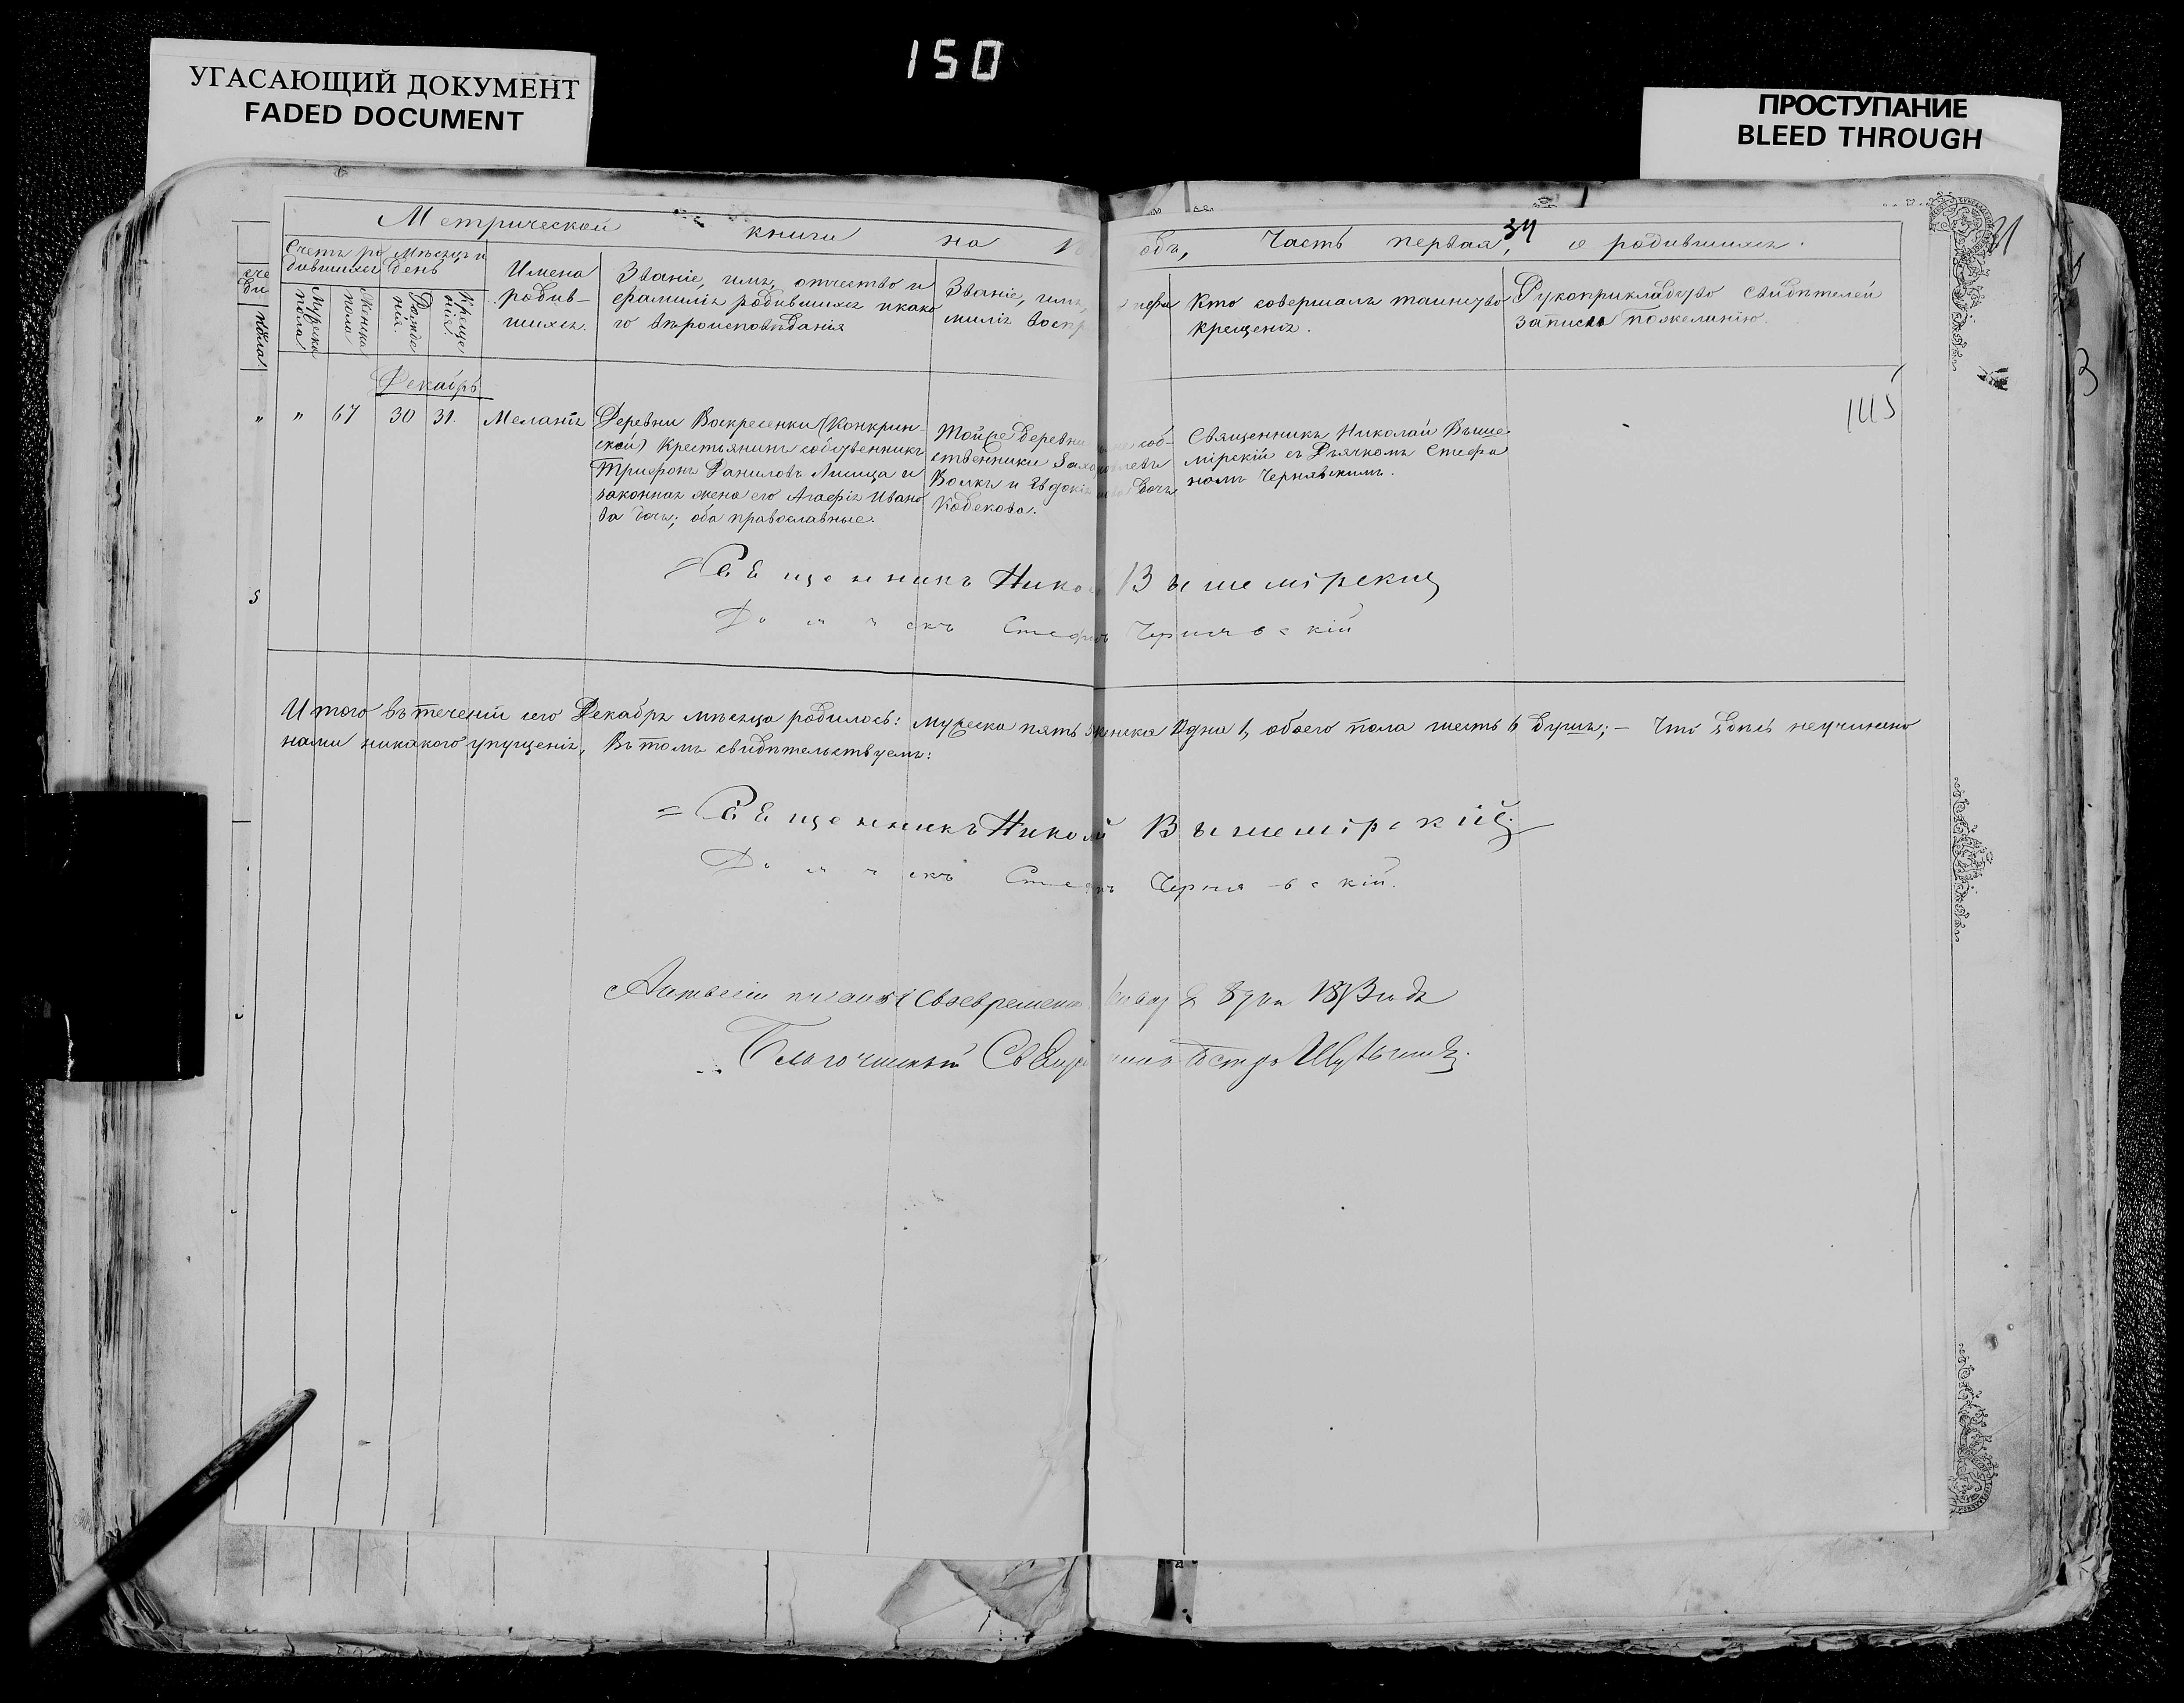 150
УГАСАЮЩИЙ ДОКУМЕНТ
FADED DOCUMENT
ПРОСТУПАНИЕ
BLEED THROUGH
Метрической книги на 1
одъ, Часть первая, о родившихся.
34
Счетъ ро
дившихся
Мужеска
пола
Женска
пола
Мѣсяцъ и
день
Рожде
нія.
Креще
нія.
Имена
родив-
шихся.
Званіе, имя, отчество и
фамилія родившихся и како
го вѣроисповѣданія
Званіе, имя,
милія воспр
Кто совершалъ таинство
крещенія.
Рукоприкладство свидѣтелей
записи по желанію.
Декабрь
" 67 30 31. Меланія
Деревни Воскресенки (Конкрин-
ской) Крестьянинъ собственникъ
Трифонъ Даниловъ Лисица и
законная жена его Агафія Ивано
ва дочь; оба православные.
Той же деревни соб-
ственники
Волкъ и Евдокія дочь
Кобекова.
Священникъ Николай Выше
мірскій съ Дьячкомъ Стефа
номъ Чернявскимъ.
145
Священникъ Никол Вышемірскій
Дьячекъ Стефанъ Чернявскій
Итого въ теченіи сего Декабря мѣсяца родилось: мужеска пять женска одна 1, обоего пола шесть 6 душъ; — Что здѣсь неучинено
нами никакого упущенія, Въ томъ свидѣтельствуемъ:
Священникъ Николай Вышемірскій
Дьячекъ Стефанъ Чернявскій.
1873 года
Благочинный Священникъ Петръ